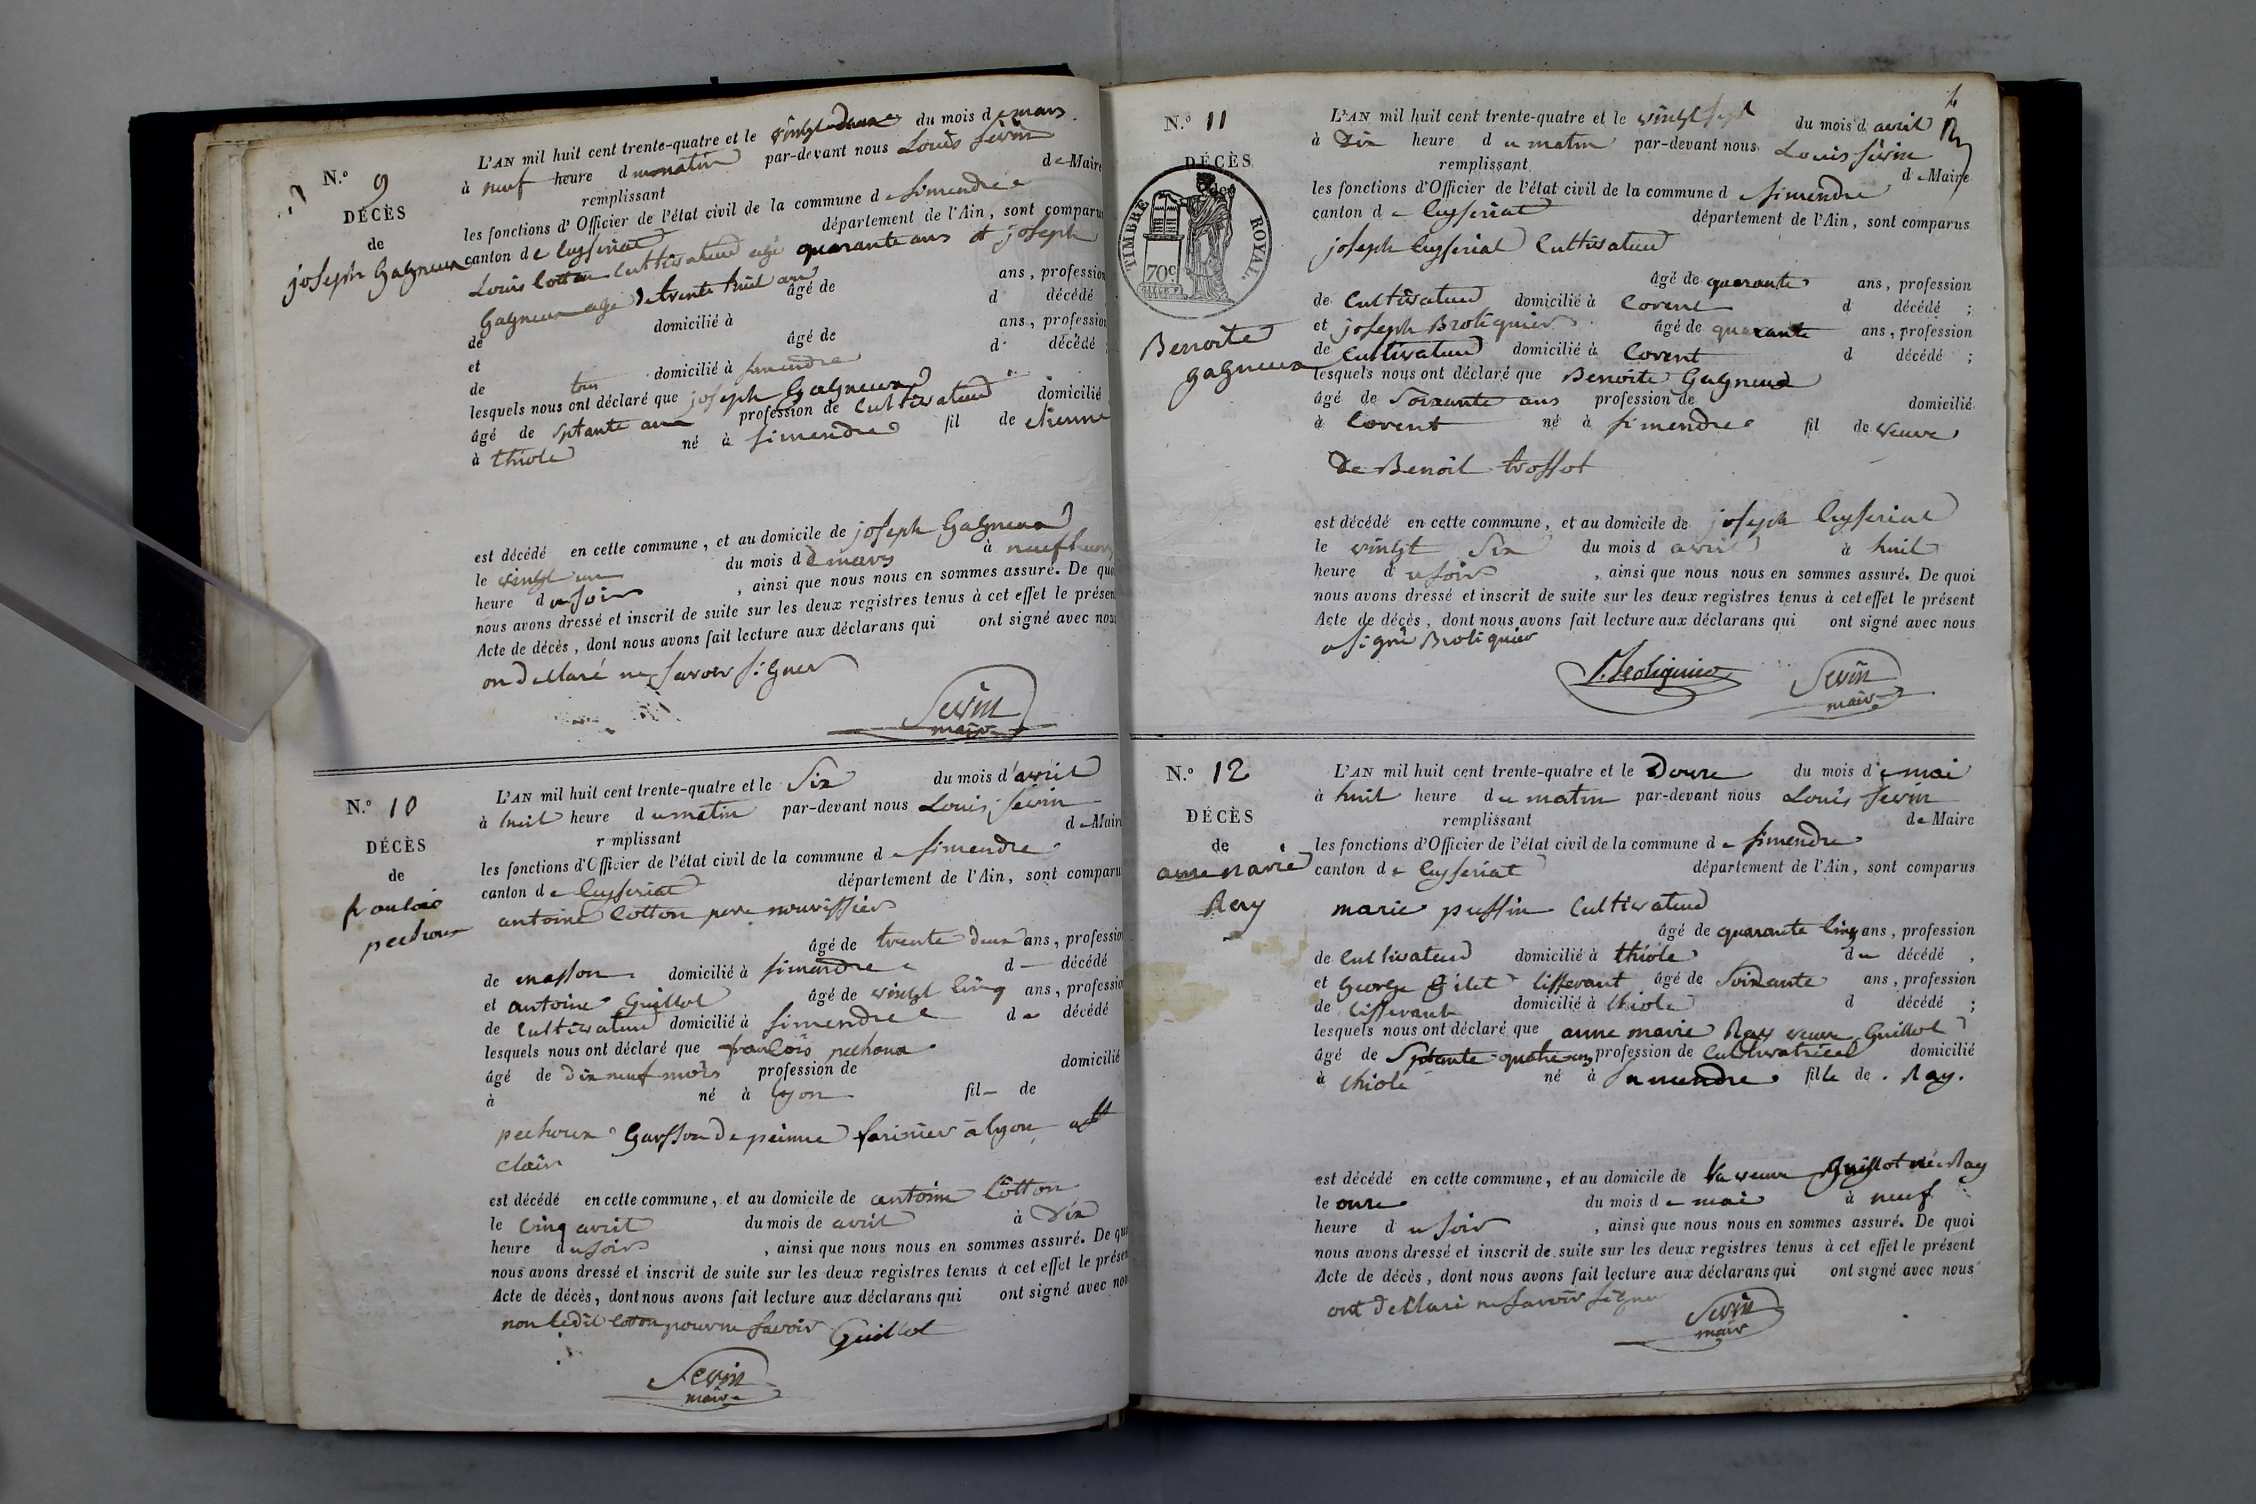 N.o 9
DÉCÈS
de
joseph Gagneux
L'AN mil huit cent trente-quatre et le vingt deux du mois de mars
à neuf heure du matin par-devant nous Louis Sevin
remplissant de Maire
les fonctions d'Officier de l'état civil de la commune de Simendre
canton de Ceyseriat département de l'Ain, sont comparu
Louis Cotton Cultivateud agé quarante ans et joseph
Gagneux age de trente huit ans âgé de ans, profession
de domicilié à d décédé
et âgé de ans, profession
de tous domicilié à simendre d décédé ;
lesquels nous ont déclaré que joseph Gagneux
âgé de sptante ans profession de Cultivateud domicilié
à thiole né à simendre fil de etienne
est décédé en cette commune, et au domicile de joseph Gagneux
le vingt un du mois de mars à neuf heures
heure du soir , ainsi que nous nous en sommes assuré. De quoi
nous avons dressé et inscrit de suite sur les deux registres tenus à cet effet le présen
Acte de décès, dont nous avons fait lecture aux déclarans qui ont signé avec nous
on dellaré ne savoir signer
Sevin
maire
N.o 10
DÉCÈS
de
francois
pechoux
L'AN mil huit cent trente-quatre et le Six du mois d'avril
à huit heure du matin par-devant nous Louis Sevin
remplissant de Maire
les fonctions d'Officier de l'état civil de la commune de Simendre
canton de Ceyseriat département de l'Ain, sont comparu
antoine Cotton pere nourissier
âgé de trente deux ans, profession
de masson domicilié à simendre d décédé
et antoine Guillot âgé de vingt cinq ans, profession
de Cultivateud domicilié à simendre de décédé
lesquels nous ont déclaré que francois pechoux
âgé de dix neuf mois profession de domicilié
à né à lyon fil de
pechoux Garsson de peinne farinier a lyon
clair
est décédé en cette commune, et au domicile de antoine Cotton
le cinq avril du mois de avril à Dix
heure du soir , ainsi que nous nous en sommes assuré. De quoi
nous avons dressé et inscrit de suite sur les deux registres tenus à cet effet le présen
Acte de décès, dont nous avons fait lecture aux déclarans qui ont signé avec nous
non ledit Cotton pour ne savoir Guillot
Sevin
maire
N.o 11
DÉCÈS
TIMBRE ROYAL.
70c
Benoite
gagneux
L'AN mil huit cent trente-quatre et le vingt sept du mois d avril
à Dix heure du matin par-devant nous Louis Sevin
remplissant de Maire
les fonctions d'Officier de l'état civil de la commune de Simendre
canton de Ceyseriat département de l'Ain, sont comparus
joseph Ceyseriat Cultivateud
âgé de quarante ans, profession
de Cultivateud domicilié à Corent d décédé ;
et joseph Broliquier âgé de quarante ans, profession
de Cultivateud domicilié à Corent d décédé ;
lesquels nous ont déclaré que Benoite Gagneux
âgé de Soixante ans profession de domicilié
à Corent né à simendre fil de veuve
De Benoit trossot
est décédé en cette commune, et au domicile de joseph Ceyseriat
le vingt Six du mois d avril à huit
heure du soir , ainsi que nous nous en sommes assuré. De quoi
nous avons dressé et inscrit de suite sur les deux registres tenus à cet effet le présent
Acte de décès, dont nous avons fait lecture aux déclarans qui ont signé avec nous
a signé Broliquier
Sevin
maire
N.o 12
DÉCÈS
de
anne marie
Rey
L'AN mil huit cent trente-quatre et le Douze du mois de mai
à huit heure du matin par-devant nous Louis Sevin
remplissant de Maire
les fonctions d'Officier de l'état civil de la commune de Simendre
canton de Ceyseriat département de l'Ain, sont comparus
marie puffin Cultivateud
âgé de quarante cinq ans, profession
de Cultivateud domicilié à thiole du décédé ,
et George Gilet tisserant âgé de Soixante ans, profession
de tisserant domicilié à thiole d décédé ;
lesquels nous ont déclaré que anne marie Ray veuve Guillot
âgé de Sptante quatre ans profession de Cultivatrice domicilié
à thiole né à simendre fille de Ray.
est décédé en cette commune, et au domicile de la veuve Guillot née Ray
le onze du mois de mai à neuf
heure du soir , ainsi que nous nous en sommes assuré. De quoi
nous avons dressé et inscrit de suite sur les deux registres tenus à cet effet le présent
Acte de décès, dont nous avons fait lecture aux déclarans qui ont signé avec nous
ont dellaré ne savoir signer
Sevin
maire